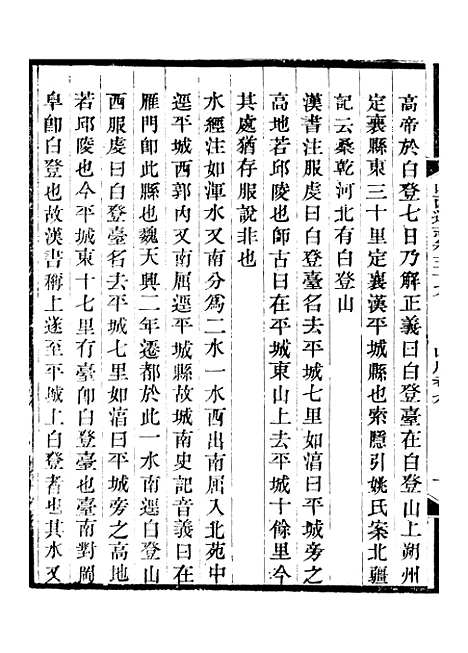 高帝於白登七日乃解正義曰白登臺在白登山上朔州
定襄縣東三十里定襄漢平城縣也索隱引姚氏案北疆
記云桑乾河北有白登山
漢書注服虔曰白登臺名去平城七里如湻曰平城旁之
高地若邱陵也師古曰在平城東山上去平城十餘里今
其處猶存服說非也
水經注如渾水又南分爲二水一水西出南屈入北苑中
逕平城西郭內又南屈逕平城縣故城南史記音義曰在
雁門卽此縣也魏天興二年遷都於此一水南逕白登山
西服虔曰白登臺名去平城七里如湻曰平城旁之高地
若邱陵也今平城東十七里有臺卽白登臺也臺南對岡
阜卽白登山也故漢書稱上遂至平城上白登者也其水又